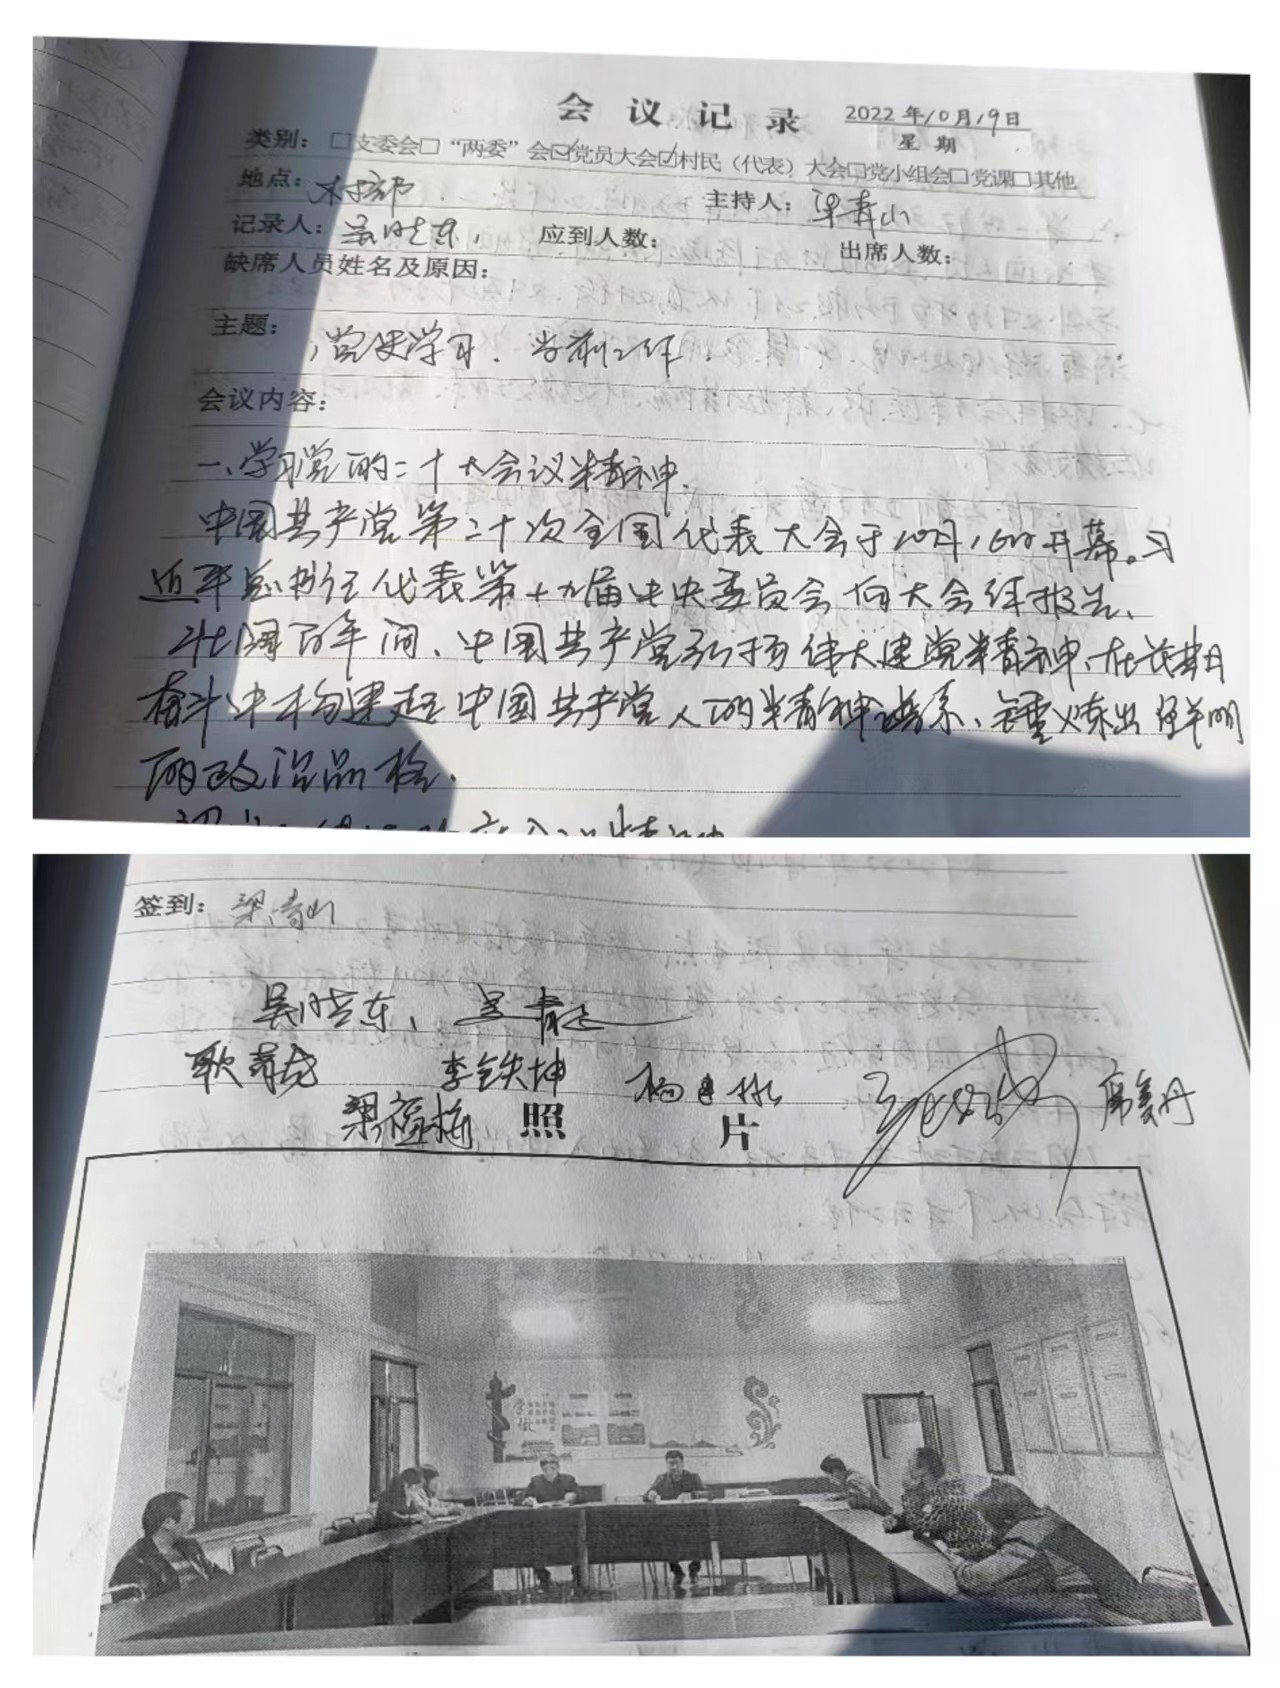 会议记录 2022年10月19日
星期
类别：□支委会□“两委”会☑党员大会☑村民（代表）大会□党小组会□党课□其他
地点：村部 主持人：梁青山
记录人：吴晓东、 应到人数： 出席人数：
缺席人员姓名及原因：
主题：党史学习、当前工作。
会议内容：
一、学习党的二十大会议精神。
中国共产党第二十次全国代表大会于10月16日开幕。习
近平总书记代表第十九届中央委员会向大会作报告、
壮阔百年间、中国共产党弘扬伟大建党精神、在长期
奋斗中构建起中国共产党人的精神谱系、锤炼出鲜明
的政治品格。
签到：梁青山
吴晓东、
李铁坤
梁福梅
席美丹
照片
学
做